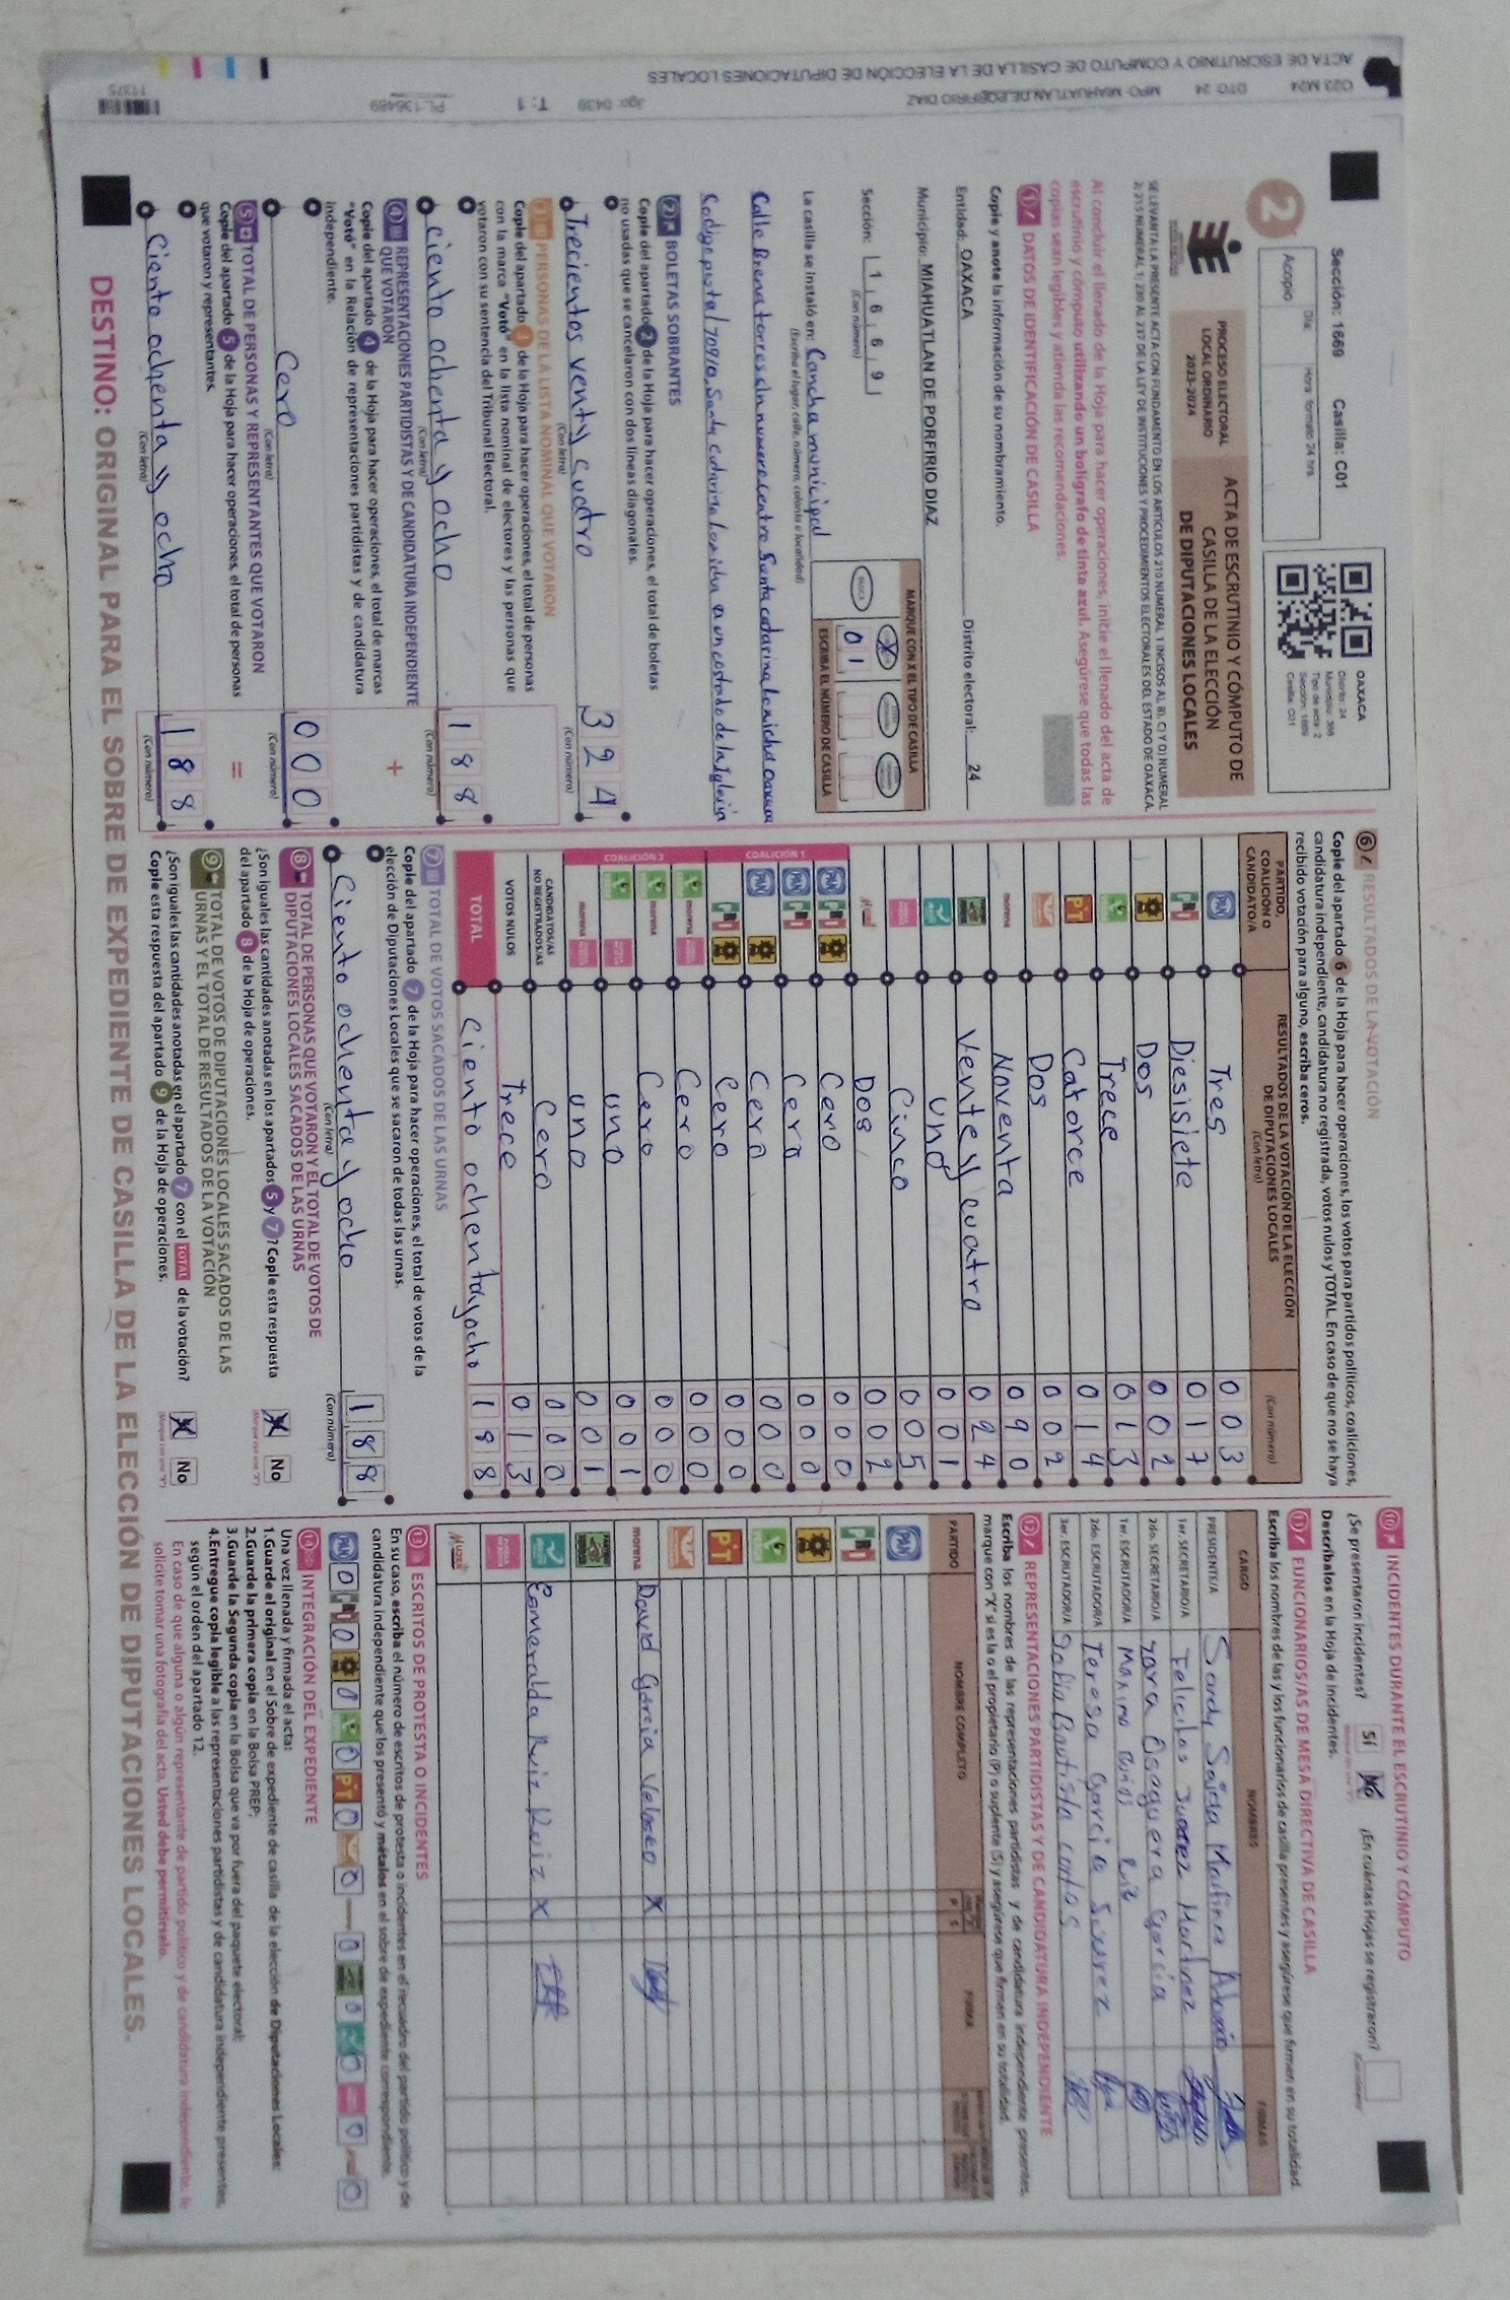 ACTA DE ESCRUTINIO Y CÓMPUTO DE CASILLA DE LA ELECCIÓN DE DIPUTACIONES LOCALES
023 M24 DTO: 24 MPO: MIAHUATLÁN DE PORFIRIO DÍAZ Jgo: 0439 T: 1 PL:136489 11375
Sección: 1669 Casilla: C01
2
Acopio
Día:
Hora: formato 24 hrs.
OAXACA
Distrito: 24
Tipo de acta: 2
Sección: 1669
Casilla: C01
PROCESO ELECTORAL
LOCAL ORDINARIO
2023-2024
ACTA DE ESCRUTINIO Y CÓMPUTO DE
CASILLA DE LA ELECCIÓN
DE DIPUTACIONES LOCALES
Al concluir el llenado de la Hoja para hacer operaciones, inicie el llenado del acta de
escrutinio y cómputo utilizando un bolígrafo de tinta azul. Asegúrese que todas las
copias sean legibles y atienda las recomendaciones.
1 DATOS DE IDENTIFICACIÓN DE CASILLA
Copie y anote la información de su nombramiento.
Entidad: OAXACA Distrito electoral: 24
Municipio: MIAHUATLAN DE PORFIRIO DIAZ
Sección: 1 6 6 9
(Con número)
MARQUE CON X EL TIPO DE CASILLA
X
ESCRIBA EL NÚMERO DE CASILLA
0 1
La casilla se instaló en: Cancha municipal
(Escriba el lugar, calle, número, colonia o localidad)
Calle Brena torres sin numero centro Santa catarina
2 BOLETAS SOBRANTES
Copie del apartado 2 de la Hoja para hacer operaciones, el total de boletas
no usadas que se cancelaron con dos líneas diagonales.
Trecientos venty cuatro 3 2 4
(Con letra) (Con número)
3 PERSONAS DE LA LISTA NOMINAL QUE VOTARON
Copie del apartado de la Hoja para hacer operaciones, el total de personas
con la marca "Votó" en la lista nominal de electores y las personas que
votaron con su sentencia del Tribunal Electoral.
ciento ochenta y ocho 1 8 8
(Con letra) (Con número)
4 REPRESENTACIONES PARTIDISTAS Y DE CANDIDATURA INDEPENDIENTE
QUE VOTARON
+
Copie del apartado 4 de la Hoja para hacer operaciones, el total de marcas
"Votó" en la Relación de representaciones partidistas y de candidatura
independiente.
Cero 0 0 0
(Con letra) (Con número)
5 TOTAL DE PERSONAS Y REPRESENTANTES QUE VOTARON
=
Copie del apartado 5 de la Hoja para hacer operaciones, el total de personas
que votaron y representantes.
Ciento ochenta y ocho 1 8 8
(Con letra) (Con número)
6 RESULTADOS DE LA VOTACIÓN
Copie del apartado 6 de la Hoja para hacer operaciones, los votos para partidos políticos, coaliciones,
candidatura independiente, candidatura no registrada, votos nulos y TOTAL. En caso de que no se haya
recibido votación para alguno, escriba ceros.
PARTIDO,
COALICIÓN O
CANDIDATO/A
RESULTADOS DE LA VOTACIÓN DE LA ELECCIÓN
DE DIPUTACIONES LOCALES
(Con letra)
(Con número)
PAN Tres 0 0 3
PRI Diesisiete 0 1 7
Dos 0 0 2
Trece 0 1 3
PT Catorce 0 1 4
Dos 0 0 2
morena Noventa 0 9 0
Vente y cuatro 0 2 4
uno 0 0 1
Cinco 0 0 5
Dos 0 0 2
COALICIÓN 1
PAN PRI Cero 0 0 0
PAN PRI Cero 0 0 0
PAN Cero 0 0 0
PRI Cero 0 0 0
COALICIÓN 2
morena Cero 0 0 0
morena Cero 0 0 0
uno 0 0 1
morena uno 0 0 1
CANDIDATOS/AS
NO REGISTRADOS/AS Cero 0 0 0
VOTOS NULOS Trece 0 1 3
TOTAL Ciento ochentayocho 1 8 8
7 TOTAL DE VOTOS SACADOS DE LAS URNAS
Copie del apartado 7 de la Hoja para hacer operaciones, el total de votos de la
elección de Diputaciones Locales que se sacaron de todas las urnas.
Ciento ochenta y ocho 1 8 8
(Con letra) (Con número)
8 TOTAL DE PERSONAS QUE VOTARON Y EL TOTAL DE VOTOS DE
DIPUTACIONES LOCALES SACADOS DE LAS URNAS
¿Son iguales las cantidades anotadas en los apartados 5 y 7? Copie esta respuesta
del apartado 8 de la Hoja de operaciones.
X No
9 TOTAL DE VOTOS DE DIPUTACIONES LOCALES SACADOS DE LAS
URNAS Y EL TOTAL DE RESULTADOS DE LA VOTACIÓN
¿Son iguales las cantidades anotadas en el apartado 7 con el TOTAL de la votación?
Copie esta respuesta del apartado 9 de la Hoja de operaciones.
X No
10 INCIDENTES DURANTE EL ESCRUTINIO Y CÓMPUTO
¿Se presentaron incidentes? Sí No ¿En cuántas Hojas se registraron?
Descríbalos en la Hoja de incidentes.
11 FUNCIONARIOS/AS DE MESA DIRECTIVA DE CASILLA
Escriba los nombres de las y los funcionarios de casilla presentes y asegúrese que firmen en su totalidad.
CARGO NOMBRES FIRMAS
PRESIDENTE/A Sardy Saida Martinez
1er. SECRETARIO/A Felicitas Juarez Martinez
2do. SECRETARIO/A Yara Oseguera García
1er. ESCRUTADOR/A
2do. ESCRUTADOR/A Teresa Garcia Juarez
3er. ESCRUTADOR/A Bautista
12 REPRESENTACIONES PARTIDISTAS Y DE CANDIDATURA INDEPENDIENTE
Escriba los nombres de las representaciones partidistas y de candidatura independiente presentes,
marque con "X" si es la o el propietario (P) o suplente (S) y asegúrese que firmen en su totalidad.
PARTIDO NOMBRE COMPLETO P S FIRMA
PAN
PRI
PT
morena David Garcia Velasco X
Esmeralda Ruiz Ruiz X
MUJER
13 ESCRITOS DE PROTESTA O INCIDENTES
En su caso, escriba el número de escritos de protesta o incidentes en el recuadro del partido político y de
candidatura independiente que los presentó y métalos en el sobre de expediente correspondiente.
PAN 0 PRI 0 0 0 PT 0 0 0 0 0 0 0
14 INTEGRACIÓN DEL EXPEDIENTE
Una vez llenada y firmada el acta:
1.Guarde el original en el Sobre de expediente de casilla de la elección de Diputaciones Locales;
2.Guarde la primera copia en la Bolsa PREP;
3.Guarde la Segunda copia en la Bolsa que va por fuera del paquete electoral;
4.Entregue copia legible a las representaciones partidistas y de candidatura independiente presentes,
según el orden del apartado 12.
En caso de que alguna o algún representante de partido político y de candidatura independiente, le
solicite tomar una fotografía del acta, Usted debe permitírselo.
DESTINO: ORIGINAL PARA EL SOBRE DE EXPEDIENTE DE CASILLA DE LA ELECCIÓN DE DIPUTACIONES LOCALES.